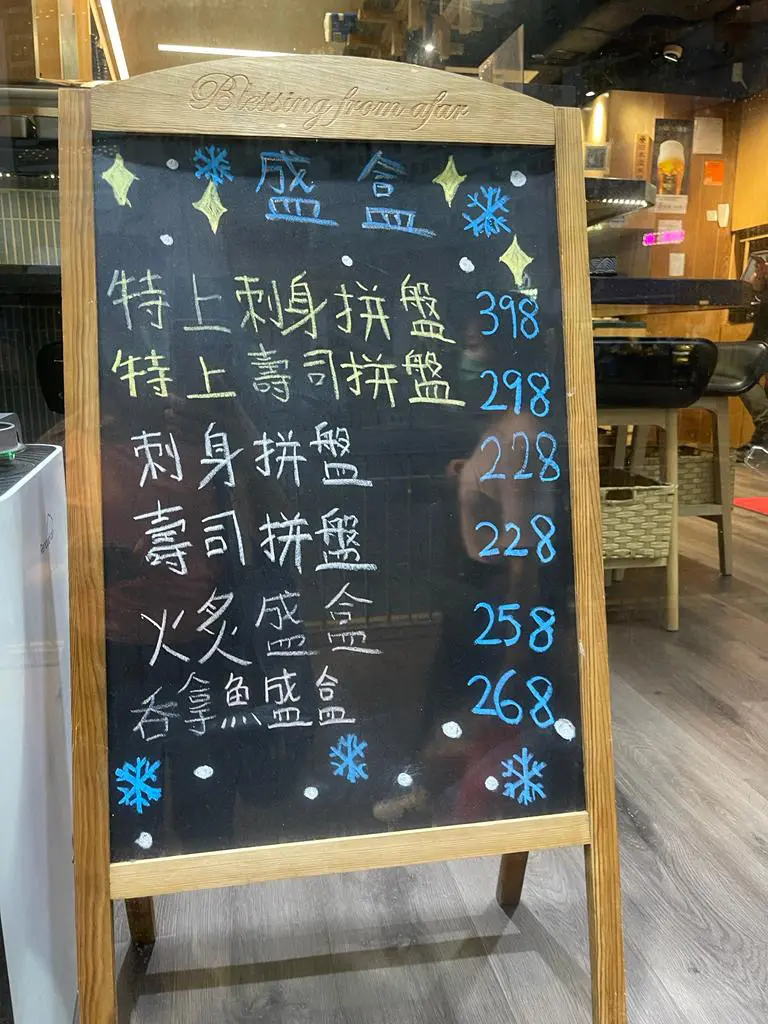 Blessing from afar
盛盒
特上刺身拼盤 398
特上壽司拼盤 298
刺身拼盤 228
壽司拼盤 228
火炙盛盒 258
吞拿魚盛盒 268